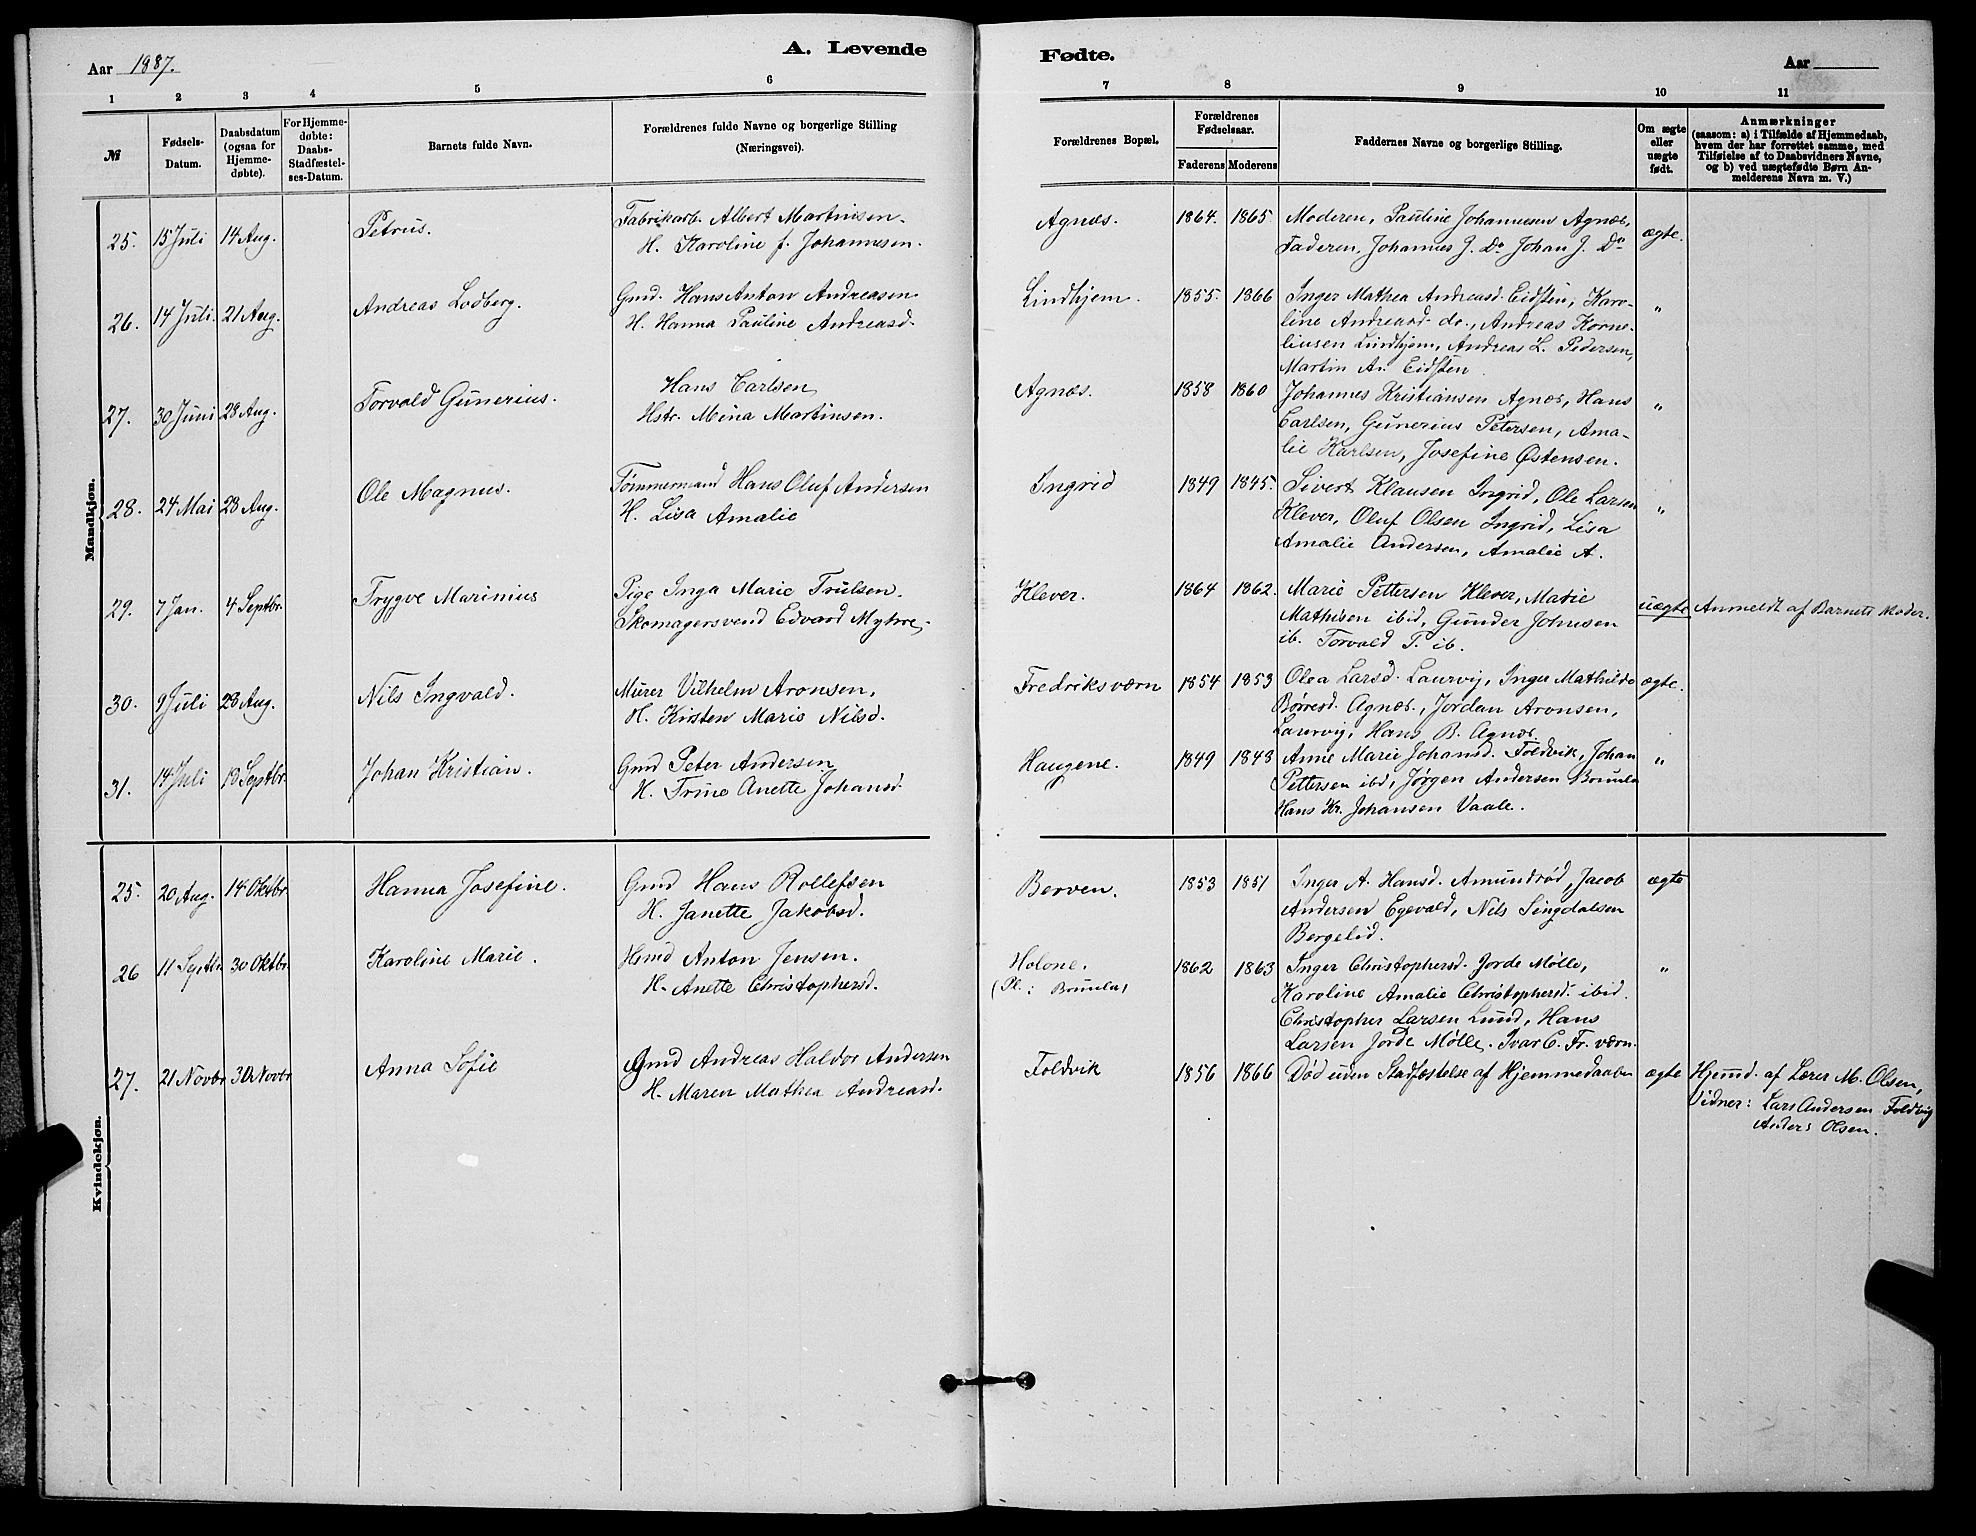 Aar 1887.
A. Levende Fødte.
Aar
1 2 3 4 5 6 7 8 9 10 11
№
Fødsels-Datum.
Daabsdatum (ogsaa for Hjemme-døbte).
For Hjemme-døbte: Daabs-Stadfæstel-ses-Datum.
Barnets fulde Navn.
Forældrenes fulde Navne og borgerlige Stilling
(Næringsvei).
Forældrenes Bopæl.
Forældrenes Fødselsaar.
Faderens Moderens
Faddernes Navne og borgerlige Stilling.
Om ægte eller uægte født.
Anmærkninger
(saasom: a) i Tilfælde af Hjemmedaab,
hvem der har forrettet samme, med
Tilføielse af to Daabsvidners Navne,
og b) ved uægtefødte Børn An-
melderens Navn m. V.)
Mandkjøn.
25. 15 Juli 14 Aug. Petrus. Fabrikarb. Albert Martinsen.
H. Karoline f. Johannesen.
Agnæs. 1864. 1865. Moderen, Pauline Johannesen Agnæs, ægte.
Faderen, Johannes J. Do Johan J. Do
26. 14 Juli. 21 Aug. Andreas Lodberg. Gmd. Hans Anton Andreasen
H. Hanna Pauline Andreasd.
Lindhjem. 1855. 1866 Inger Mathea Andreasd. Eidsten, Karo- "
line Andreasd. do., Andreas Korne-
liusen Lindhjem, Andreas L. Pedersen,
Martin An. Eidsten.
27. 30 Juni 28 Aug. Torvald Gunerius. Hans Carlsen
Hstr. Mina Martinsen.
Agnæs. 1858 1860 Johannes Kristiansen Agnæs, Hans "
Carlsen, Gunerius Petersen, Ama-
lie Karlsen, Josefine Østensen.
28. 24 Mai 28 Aug. Ole Magnus. Tømmermand Hans Oluf Andersen
H. Lisa Amalie
Ingrid 1849 1845. Sivert Klausen Ingrid, Ole Larsen "
Klever, Oluf Olsen Ingrid, Lisa
Amalie Andersen, Amalie A.
29. 7 Jan. 4 Septbr. Trygve Marinius Pige Inga Marie Trulsen.
Skomagersvend Edvard Myhre.
Klever. 1864 1862. Marie Pettersen Klever, Marie uægte Anmeldt af Barnets Moder.
Mathisen ibid, Gunder Johnsen
ib. Torvald T. ib.
30. 9 Juli 28 Aug. Nils Ingvald. Murer Vilhelm Aronsen,
H. Kirsten Marie Nilsd.
Fredriksværn 1854 1853 Olea Larsd. Laurvig, Inger Mathilde ægte.
Børresd. Agnæs, Jordan Aronsen,
Laurvig, Hans B. Agnæs
31. 14 Juli 18 Septbr. Johan Kristian. Gmd Peter Andersen
H. Trine Anette Johansd.
Haugene. 1849 1843 Anne Marie Johansd. Foldvik, Johan "
Pettersen ibd, Jørgen Andersen Brunla
Hans Kr. Johansen Vaale.
Kvindekjøn.
25. 20 Aug. 14 Oktbr Hanna Josefine. Gmd Hans Rollefsen
H. Janette Jakobsd.
Berven. 1853 1851 Inger A. Hansd. Amundrød, Jacob ægte
Andersen Egevald, Nils Singdalsen
Bergelid.
26 11 Septbr 30 Oktbr. Karoline Marie. Hmd Anton Jensen.
H. Anette Christophersd.
Holone.
(Pl.: Brunla) 1862 1863 Inger Christophersd. Jorde Mølle, "
Karoline Amalie Christophersd. ibid.
Christopher Larsen Lund, Hans
Larsen Jorde Mølle. Ivar C. Fr. værn.
27. 21 Novbr 30 Novbr Anna Sofie Gmd Andreas Haldor Andersen
H. Maren Mathea Andreasd.
Foldvik 1856 1866 Død uden Stadfæstelse af Hjemmedaaben ægte Hjemmd. af Lærer M. Olsen,
Vidner: Lars Andersen Foldvig
Anders Olsen.